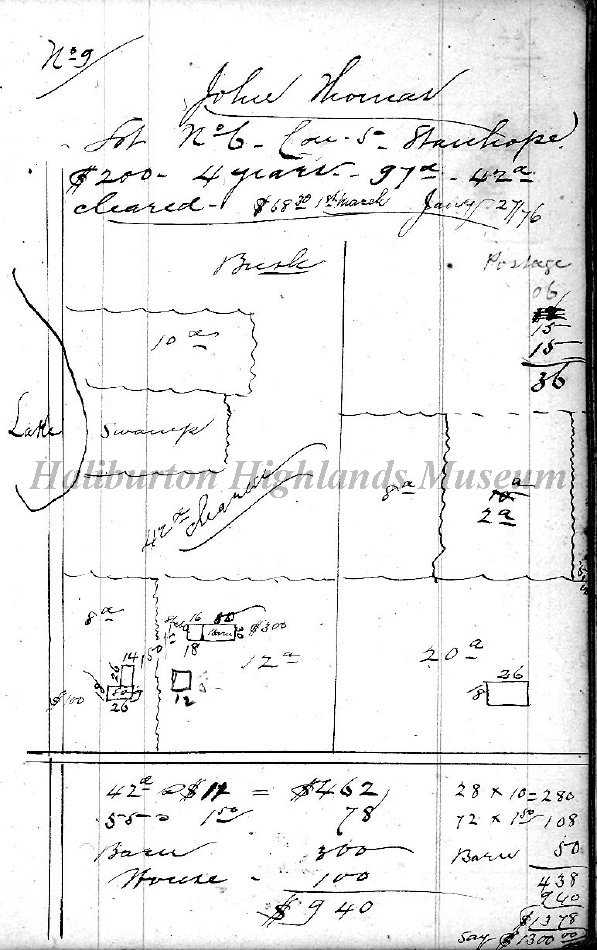 No 9
John Thomas
Lot No 6 - Con - 5 - Stanhope
$200 - 4 years - 97a - 42a
cleared - $68 20 1st March Jany 27/76
Bush
Postage
06
15
15
36
10 a
Lake
Swamp
42a cleared
8 a
a
2a
8 a
16
$300
18
12a
20a
14
26
150
$100
26
12
26
18
Haliburton Highlands Museum
42a @ $11 = $462
55 @ 1 50 78
Barn 300
House - 100
$940
28 x 10 = 280
72 x 1 50 108
Barn 50
438
940
$1378
Say $1300 00